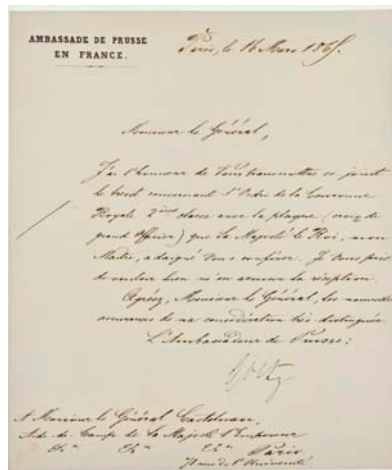 AMBASSADE DE PRUSSE
EN FRANCE.
Paris, le 16 Mars 1865.
Monsieur le Général,
J'ai l'honneur de Vous transmettre ci-joint
le brevet concernant l'Ordre de la Couronne
Royale 2ème classe avec la plaque (croix de
grand Officier) que Sa Majesté le Roi, mon
Maître, a daigné Vous conférer. Je Vous prie
de vouloir bien m'en accuser la réception.
Agréez, Monsieur le Général, les nouvelles
assurances de ma considération très distinguée
L'Ambassadeur de Prusse:
Goltz
A Monsieur le Général Castelnau,
Aide-de-Camp de Sa Majesté l'Empereur
Paris
rue de l'Université